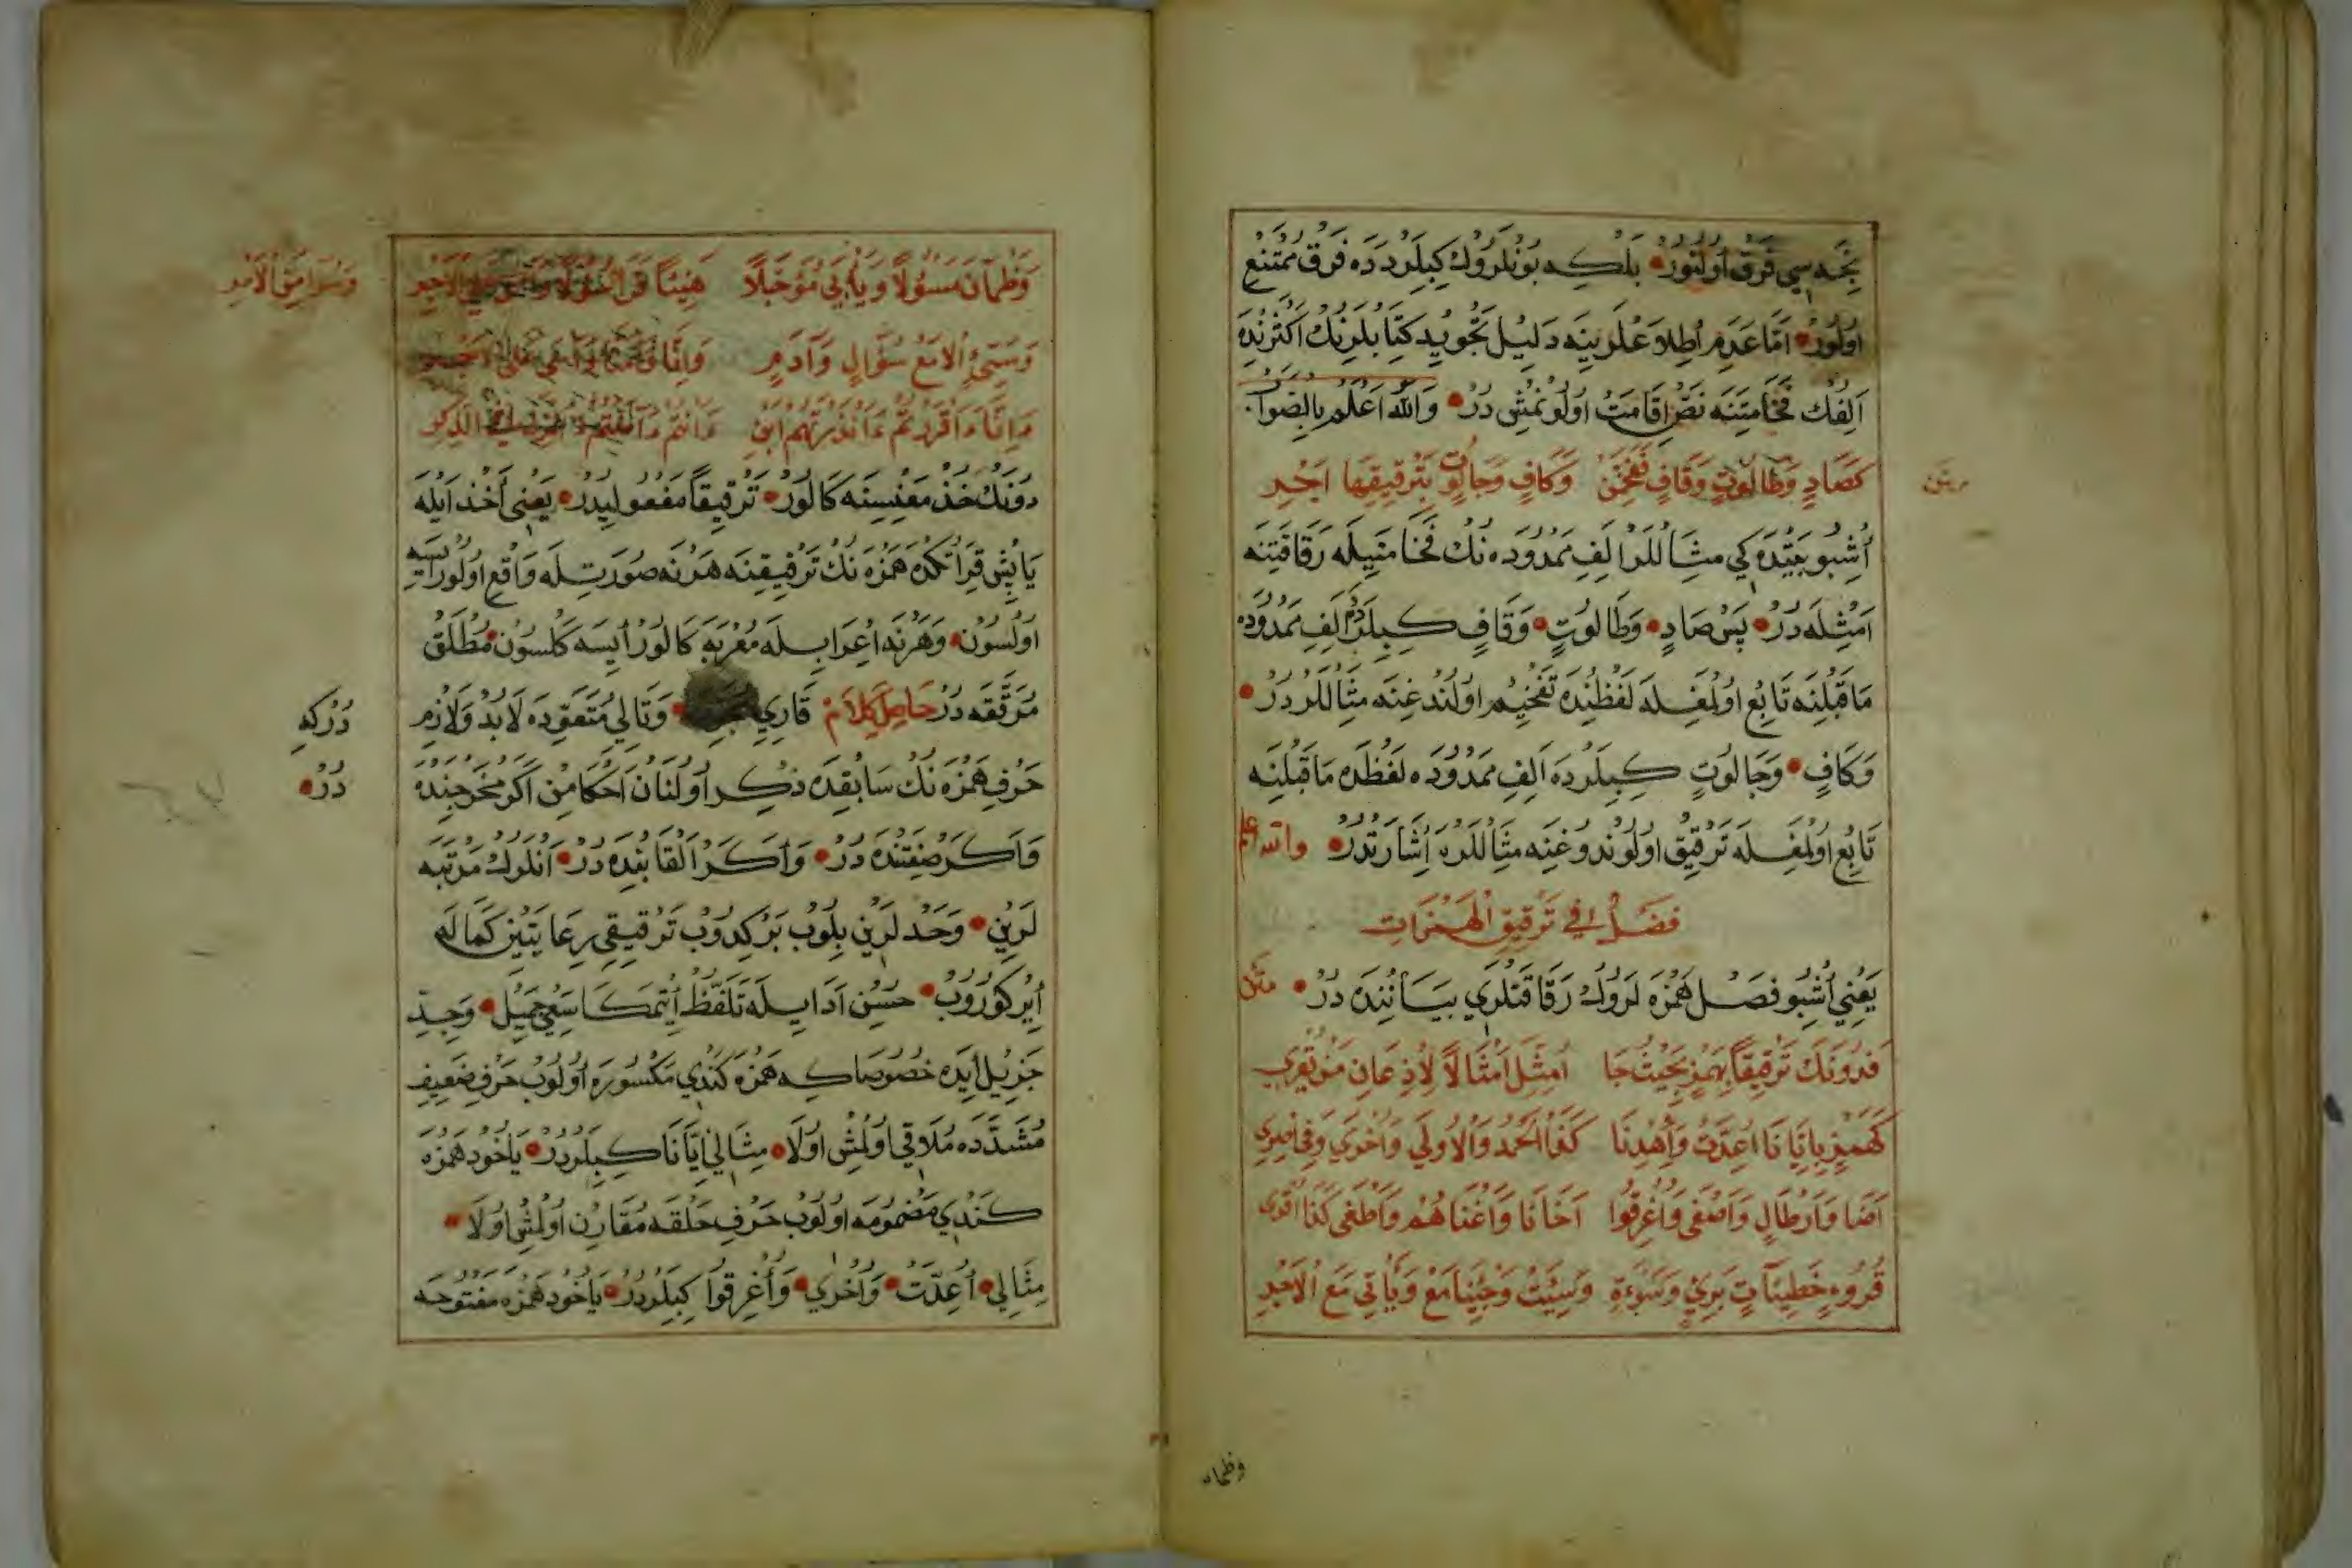 نجه سي فَرق اُولنور بلكه بونلروك كبيلرده ده فرق ممتنع
اولور امّا عدم اطلاعلرينه دليل تجويد كتابلرينك اكثرنده
الفك فخامتنه نصّ اقامت اولونمش در والله اعلم بالصواب
كَصَادٍ وَطَالُوتٍ وَقَافٍ فَفَخِّمَنْ وَكَافٍ وَجَالُوتٍ بِتَرْقِيقِهَا اَجْدِرِ
متن
اُشبو بيتده كي مثاللر الف ممدوده نك فخامتيله رقاقتنه
امثله در پس صاد وطالوت وقاف كبيلردم الف ممدوده
ماقبلنه تابع اولمغله لفظنده تفخيم اولندغنه مثاللر در
وكاف وجالوت كبيلرده الف ممدوده لفظده ماقبلنه
تابع اولمغله ترقيق اولوندوغنه مثاللره اشارتدر والله اعلم
فصل في ترقيق الهمزات
يعني اُشبو فصل همزه لروك رقاقتلري بياننده در متن
فَدُونَكَ تَرْقِيقًا بِهَمْزٍ بِحَيْثُ جَا اَمْثِلْ اَمْثَالًا لِاِذْعَانِ مَنْ تَقْرِي
كَهَمْزٍ بِاِيَّانَا اُعِدَّتْ وَاهْدِنَا كَذَا الْحَمْدُ وَالْاُولَى وَاُخْرَى وَفِي اَمْرِي
اَضَا وَاَرْطَالٍ وَاَصْفَى وَاُغْرِقُوا اَخَانَا وَاَغْنَاهُمْ وَاَطْغَى كَذَا اَقْوَى
قُرُوءٍ خَطِيئَاتٍ بَرِيءٍ وَسَوْءَةٍ وَسِيئَتْ وَجِئْنَا مَعْ وَيَأْتِي مَعَ الْاَجْدِ
وظمان
وَظَمْآنَ مَسْؤُلًا وَيَأْبَى مُؤَجَّلًا هَنِيئًا
وَاٰدَمٍ وَاِنَّا
دونك خذ معنيسنه كالور ترقيقاً مفعوليدر يعني اخذ ايله
يا پيش قرائتكده همزه نك ترقيقنه هر نه صورتله واقع اولورايسه
اولسون وهرنه اعرابله معربه كالورايسه كلسون مطلق
مرققه در حاصل كلام قاري وتالي متعوّده لابدّ ولازم
دركه
حرف همزه نك سابقده ذكر اولنان احكامن اكر مخرجنده
در
واكر صفتنده در واكر القابنده در انلروك مرتبه
لرين وحدلرين بلوب بركدوب ترقيقي رعايتين كماله
ايركوروب حسن ادا ايله تلفظ ايتمكا سعي جميل وجدّ
جزيل ايده خصوصاكه همزه كندي مكسوره اولوب حرف ضعيف
مشدّده ملاقي اولمش اولا مثالي ايّانا كبيلردر ياخود همزه
كندي مضمومه اولوب حرف حلقه مقارن اولمش اولا
مثالي اُعِدَّتْ وَاُخْرَى وَاُغْرِقُوا كبيلردر ياخود همزه مفتوحه